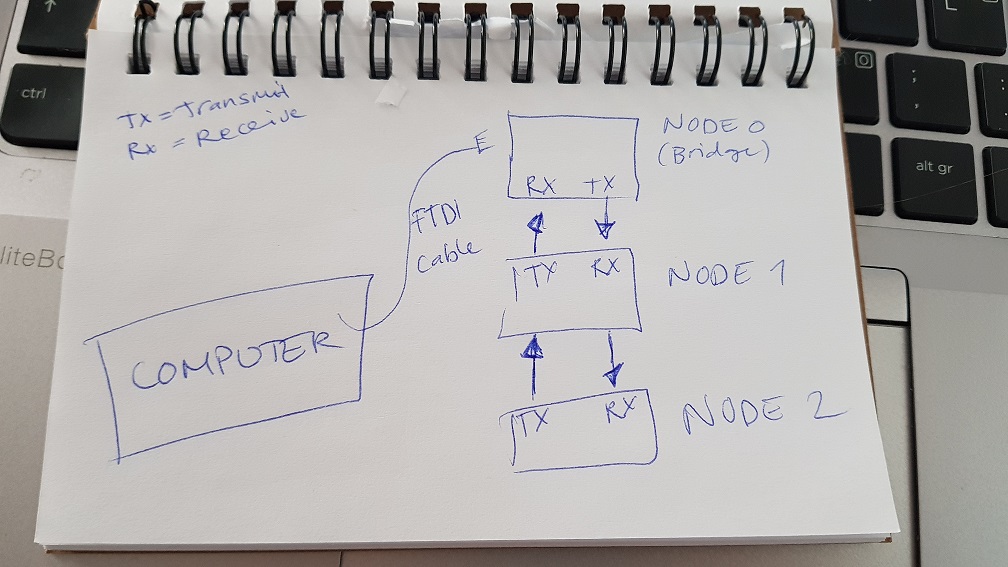 ctrl
alt gr
;
,
TX = Transmit
Rx = Receive
NODE 0
(Bridge)
RX TX
FTDI
cable
TX RX
NODE 1
COMPUTER
TX RX
NODE 2
liteBo